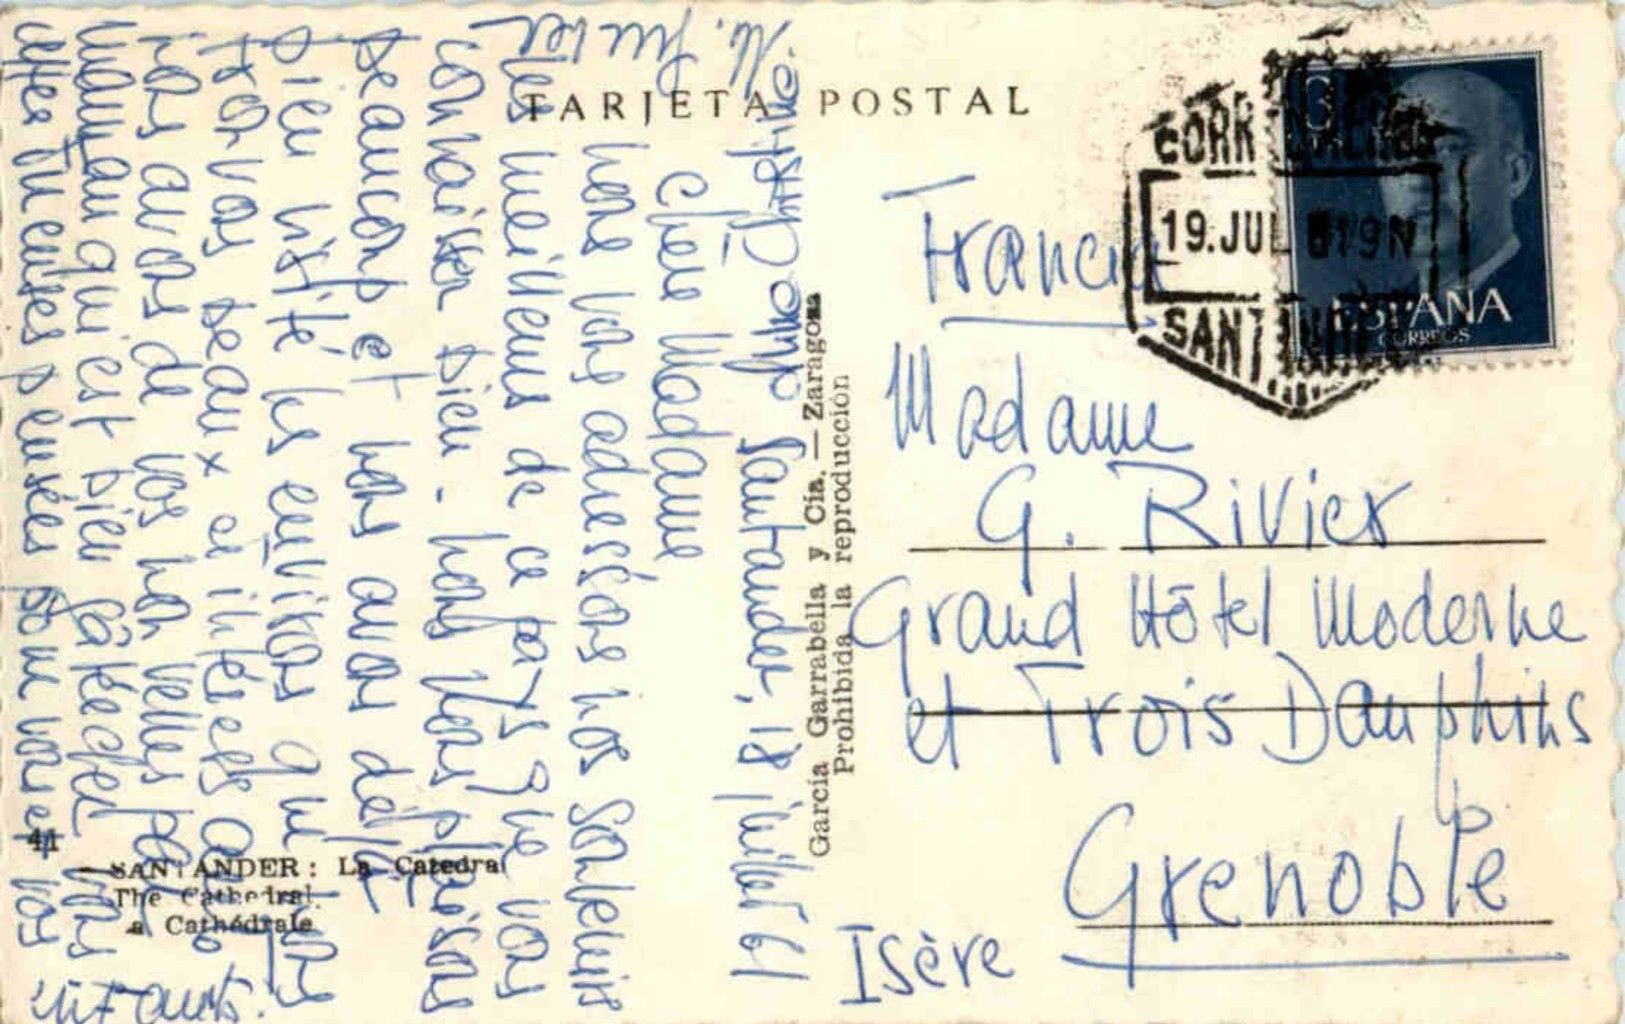 TARJETA POSTAL
CORREO
19.JUL 61 9N
SANTANDER
ESPAÑA
CORREOS
Francia
Madame
G. Rivier
Grand Hôtel Moderne
et Trois Dauphins
Grenoble
Isère
García Garrabella y Cía. — Zaragoza
Prohibida la reproducción
Santander, 18 juillet 61
Chère Madame
nous vous adressons nos souvenirs
les meilleurs de ce pays que vous
connaissez bien. nous nous plaisons
beaucoup et nous avons déjà
bien visité les environs que nous
trouvons beaux et intéressants.
nous avons de vos nouvelles par
maman qui est bien fatiguée
affectueuses pensées pour vous et vos
enfants.
41
SANTANDER: La Catedral
The Cathedral.
La Cathédrale